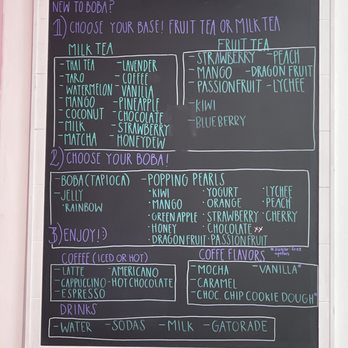 NEW TO BOBA?
1) CHOOSE YOUR BASE! FRUIT TEA OR MILK TEA
MILK TEA
- THAI TEA - LAVENDER
- TARO - COFFEE
- WATERMELON - VANILLA
- MANGO - PINEAPPLE
- COCONUT - CHOCOLATE
- MILK - STRAWBERRY
- MATCHA - HONEYDEW
FRUIT TEA
- STRAWBERRY - PEACH
- MANGO - DRAGON FRUIT
- PASSIONFRUIT - LYCHEE
- KIWI
- BLUEBERRY
2) CHOOSE YOUR BOBA!
- BOBA (TAPIOCA) - POPPING PEARLS
- JELLY
• RAINBOW
• KIWI • YOGURT • LYCHEE
• MANGO • ORANGE • PEACH
• GREEN APPLE • STRAWBERRY • CHERRY
• HONEY • CHOCOLATE
• DRAGON FRUIT • PASSIONFRUIT
3) ENJOY! :)
COFFEE (ICED OR HOT)
- LATTE - AMERICANO
- CAPPUCCINO - HOT CHOCOLATE
- ESPRESSO
COFFEE FLAVORS
* sugar-free options
- MOCHA - VANILLA*
- CARAMEL
- CHOC. CHIP COOKIE DOUGH*
DRINKS
- WATER - SODAS - MILK - GATORADE